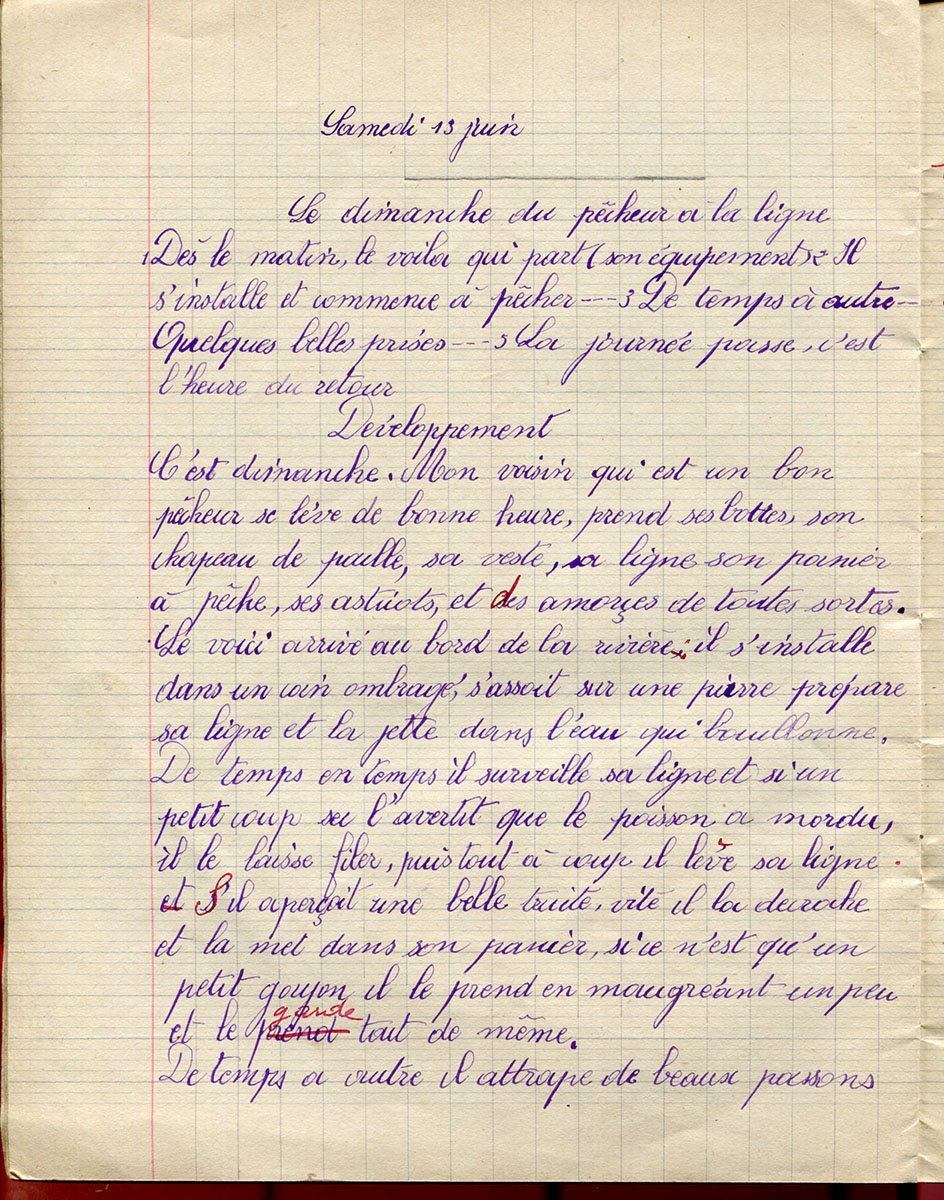 Samedi 13 juin
Le dimanche du pêcheur à la ligne
1 Dès le matin, le voila qui part (son équipement) 2 Il
s'installe et commence à pêcher --- 3 De temps à autre --
Quelques belles prises --- 5 La journée passe, c'est
l'heure du retour
Développement
C'est dimanche. Mon voisin qui est un bon
pêcheur se lève de bonne heure, prend ses bottes, son
chapeau de paille, sa veste, sa ligne son panier
à pêche, ses asticots, et des amorçes de toutes sortes.
Le voici arrivé au bord de la rivière; il s'installe
dans un coin ombragé, s'assoit sur une pierre prépare
sa ligne et la jette dans l'eau qui bouillonne.
De temps en temps il surveille sa ligne et si un
petit coup sec l'avertit que le poisson a mordu,
il le laisse filer, puis tout à coup il lève sa ligne.
et S'il aperçoit une belle truite, vite il la decroche
et la met dans son panier, si ce n'est qu'un
petit goujon il le prend en maugréant un peu
garde
et le prend tout de même.
De temps a autre il attrape de beaux poissons